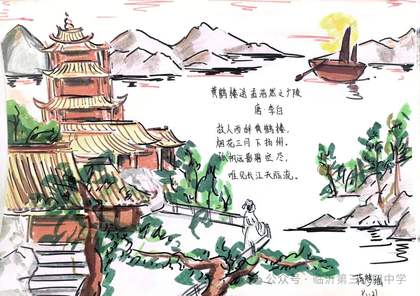 黄鹤楼送孟浩然之广陵
唐 李白
故人西辞黄鹤楼,
烟花三月下扬州。
孤帆远影碧空尽,
唯见长江天际流。
公众号·临沂第三
中学